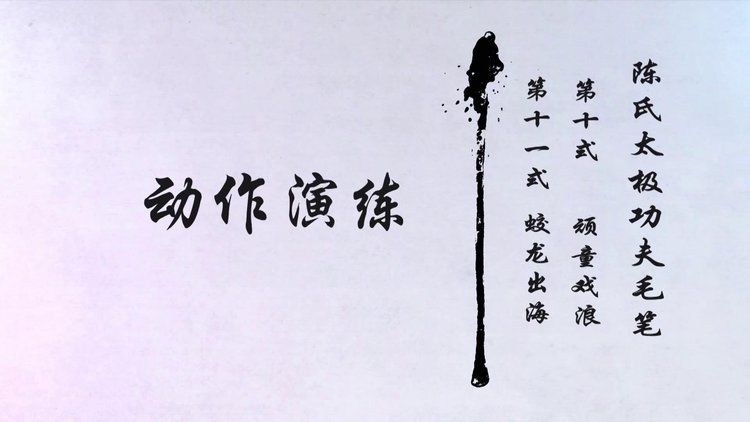 陈氏太极功夫毛笔
第十式 顽童戏浪
第十一式 蛟龙出海
动作演练